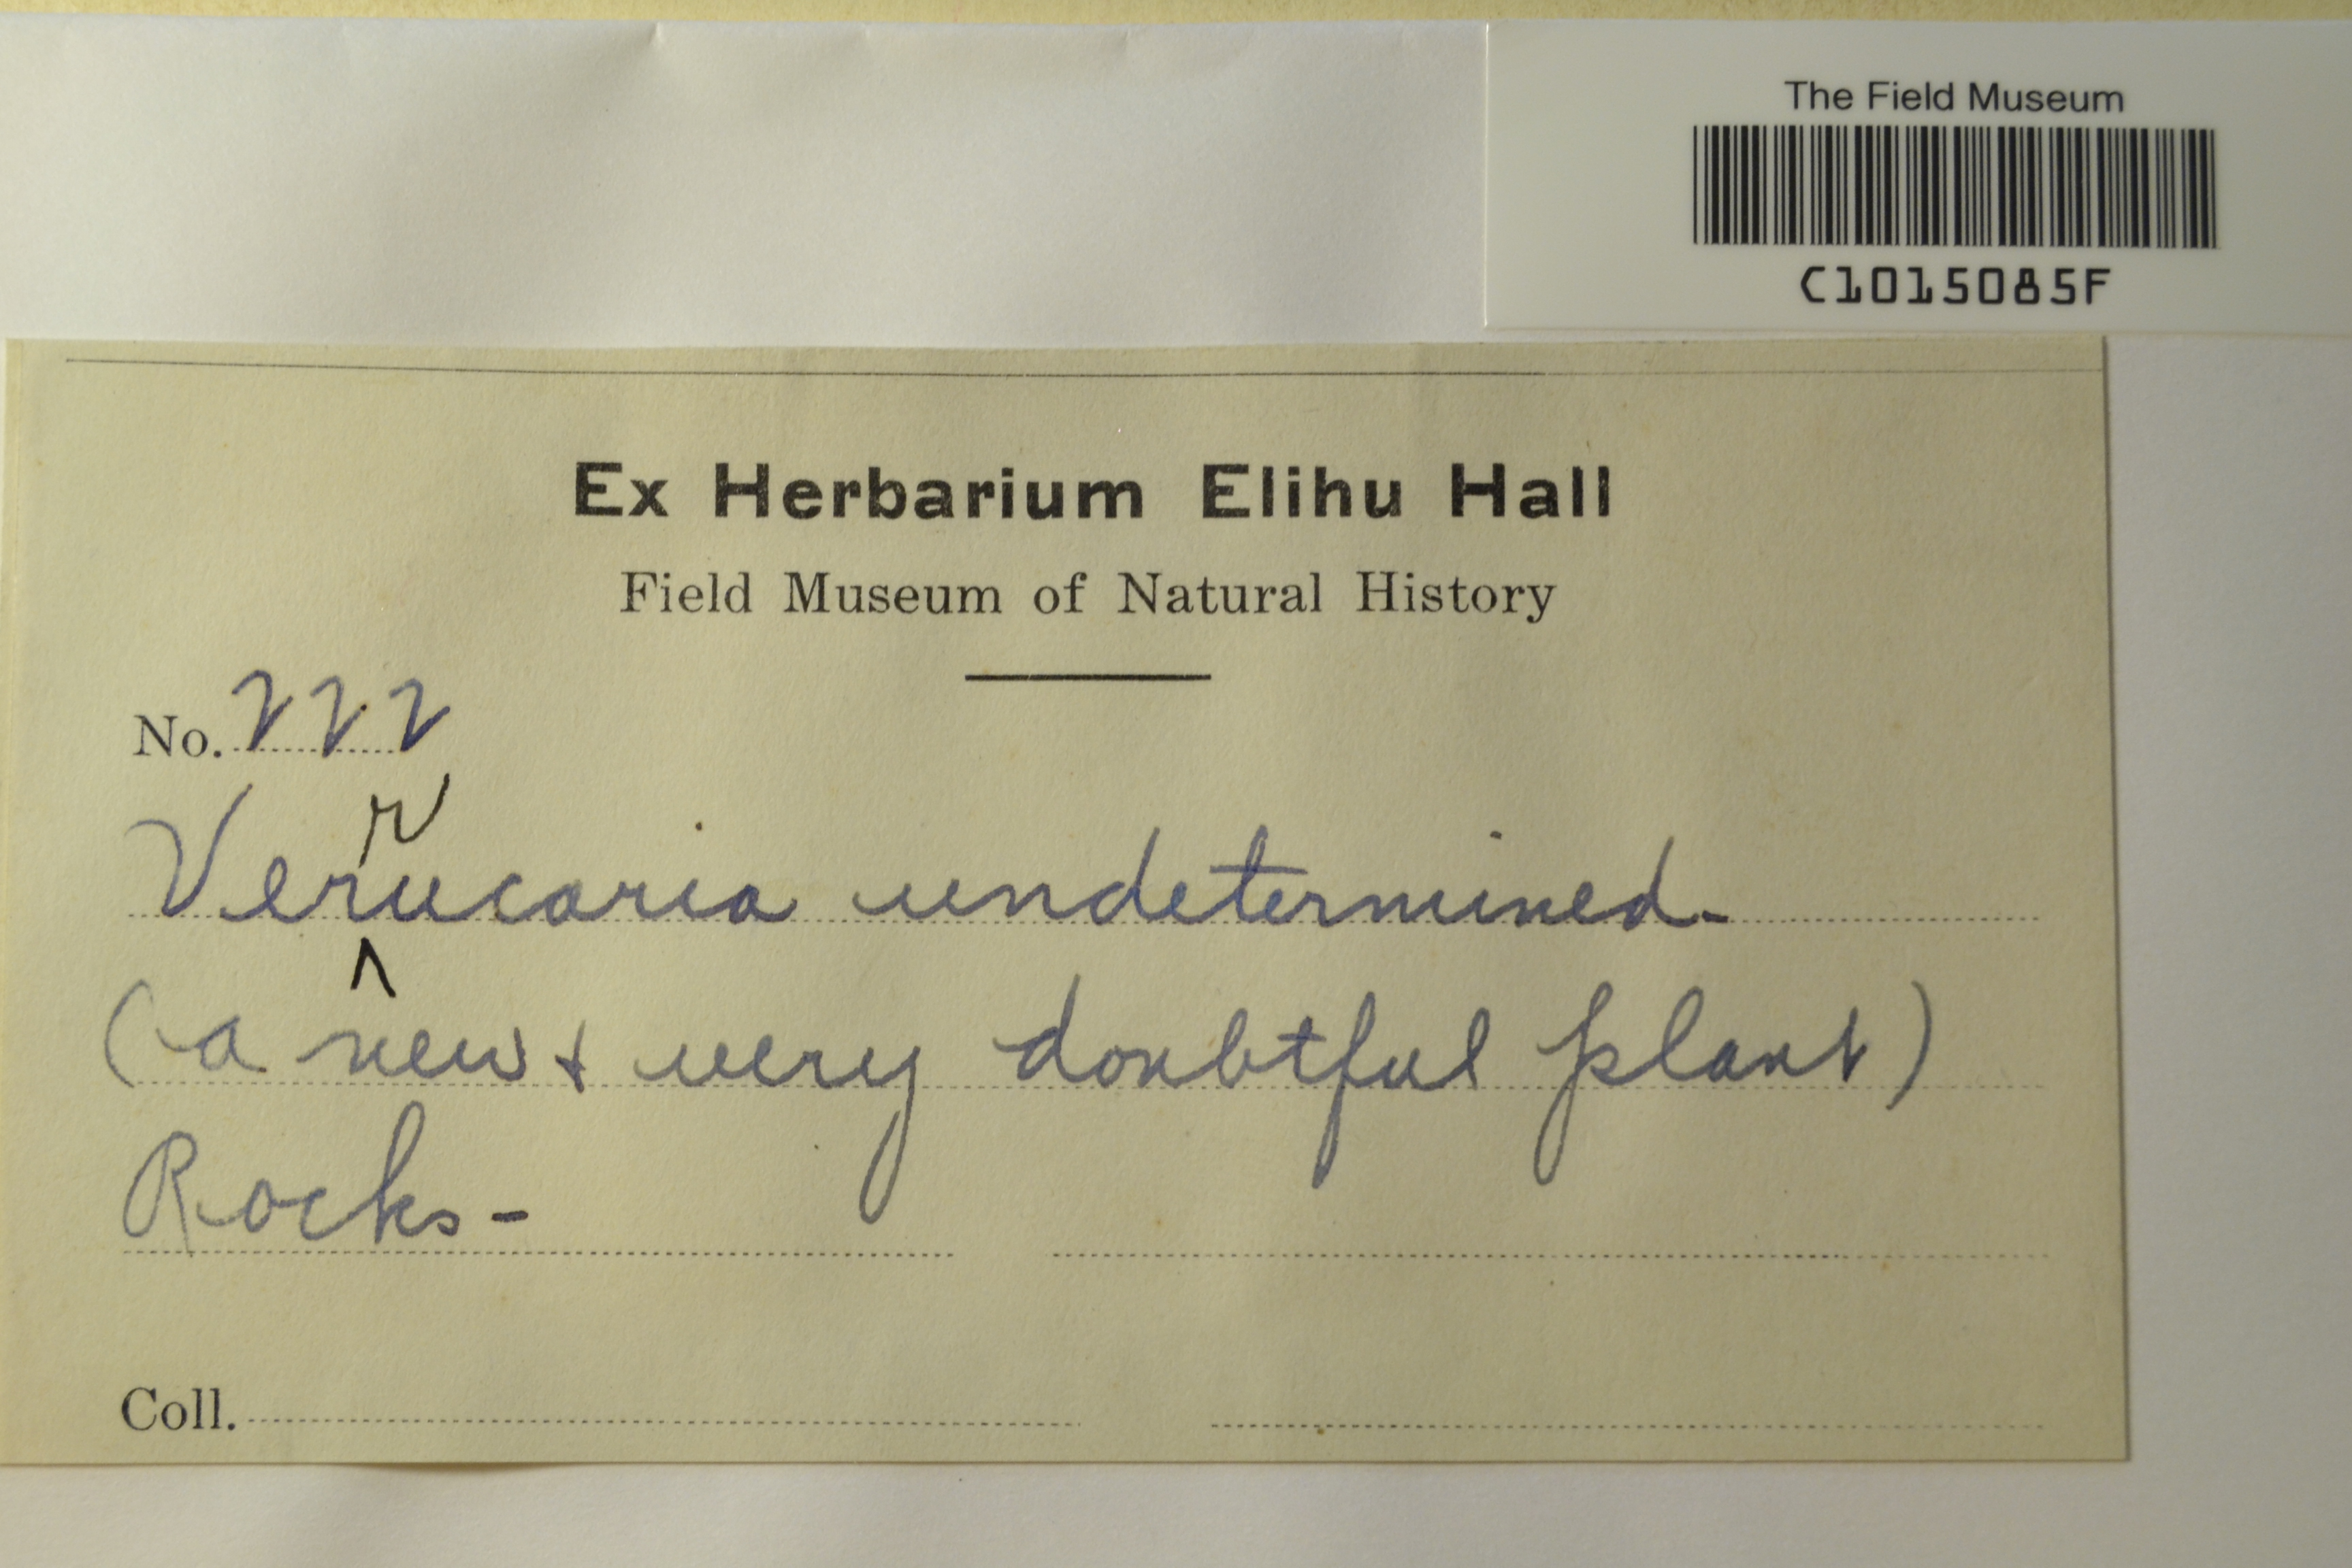 The Field Museum
C1015085F
Ex Herbarium Elihu Hall
Field Museum of Natural History
No. 222
r
Verucaria undetermined.
(a new & very doubtful plant)
Rocks -
Coll.